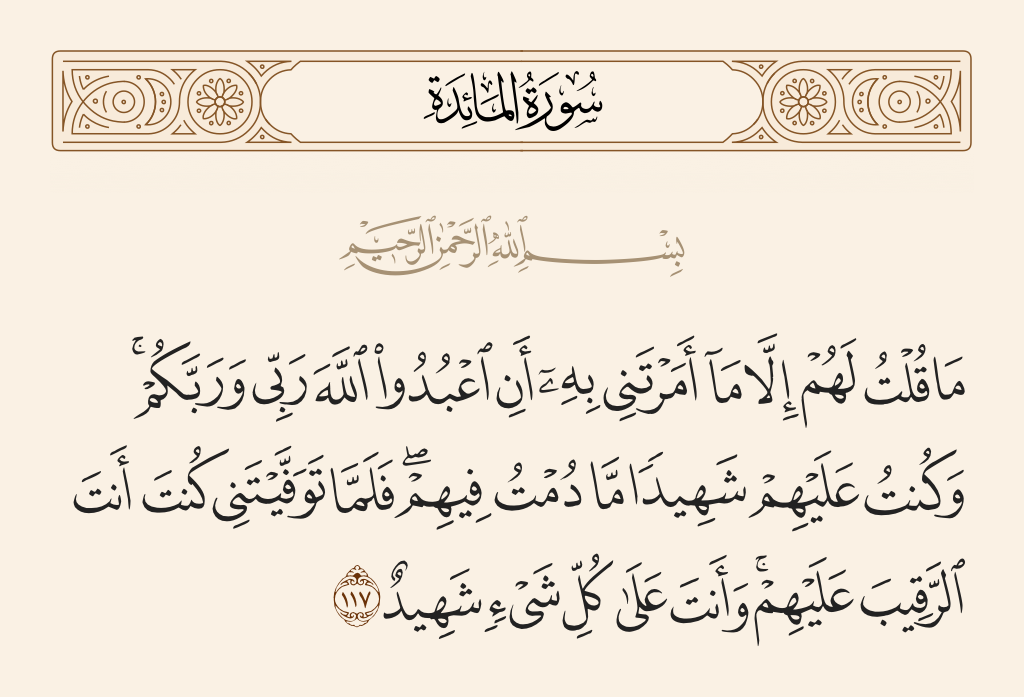 سُورَةُ المَائِدَةِ
بِسْمِ ٱللَّهِ ٱلرَّحْمَٰنِ ٱلرَّحِيمِ
مَا قُلْتُ لَهُمْ إِلَّا مَآ أَمَرْتَنِى بِهِۦٓ أَنِ ٱعْبُدُوا۟ ٱللَّهَ رَبِّى وَرَبَّكُمْ ۚ
وَكُنتُ عَلَيْهِمْ شَهِيدًا مَّا دُمْتُ فِيهِمْ ۖ فَلَمَّا تَوَفَّيْتَنِى كُنتَ أَنتَ
ٱلرَّقِيبَ عَلَيْهِمْ ۚ وَأَنتَ عَلَىٰ كُلِّ شَىْءٍ شَهِيدٌ ١١٧